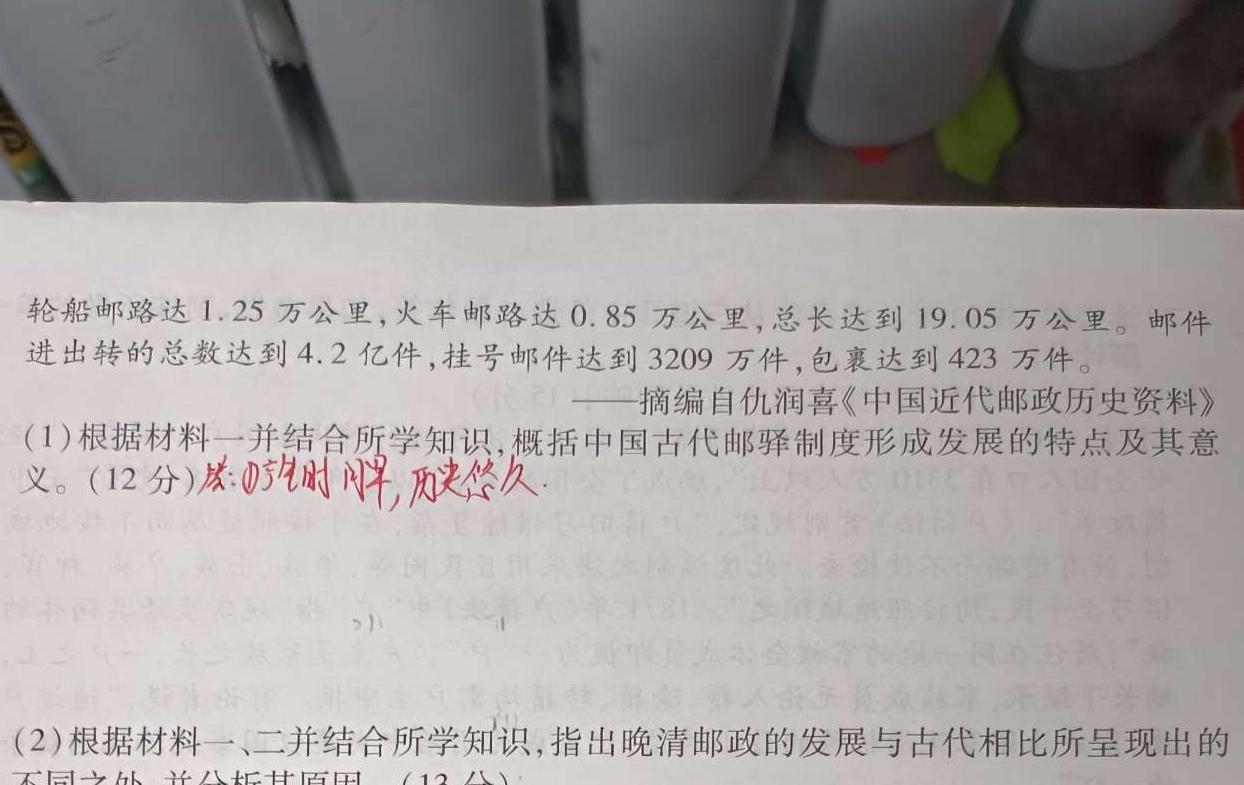 轮船邮路达1.25万公里,火车邮路达0.85万公里,总长达到19.05万公里。邮件
进出转的总数达到4.2亿件,挂号邮件达到3209万件,包裹达到423万件。
——摘编自仇润喜《中国近代邮政历史资料》
(1)根据材料一并结合所学知识,概括中国古代邮驿制度形成发展的特点及其意
义。(12分)答:①产生时间早,历史悠久.
(2)根据材料一、二并结合所学知识,指出晚清邮政的发展与古代相比所呈现出的
不同之处,并分析其原因。(13分)